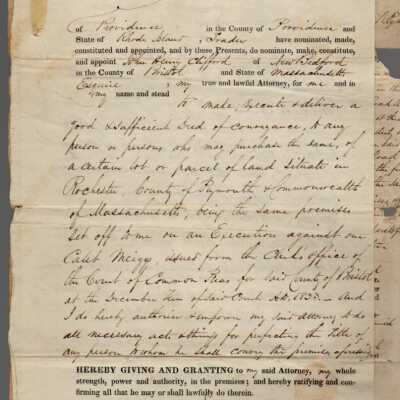 of Providence in the County of Providence and
State of Rhode Island, Trader have nominated, made,
constituted and appointed, and by these Presents, do nominate, make, constitute,
and appoint John Henry Clifford of New Bedford
in the County of Bristol and State of Massachusetts
Esquire my true and lawful Attorney, for me and in
my name and stead
to make, execute & deliver a
good & sufficient Deed of conveyance, to any
person or persons who may purchase the same, of
a certain lot or parcel of land situate in
Rochester, County of Plymouth & Commonwealth
of Massachusetts, being the same premises
set off to me on an Execution against one
Caleb Meiggs, issued from the Clerks office of
the Court of Common Pleas for said County of Bristol
at the December Term of said Court A.D. And
I do hereby authorise & empower my said attorney to do
all necessary acts & things for perfecting the title of
any person to whom he shall convey the premises aforesaid
HEREBY GIVING AND GRANTING to my said Attorney, my whole
strength, power and authority, in the premises; and hereby ratifying and con-
firming all that he may or shall lawfully do therein.